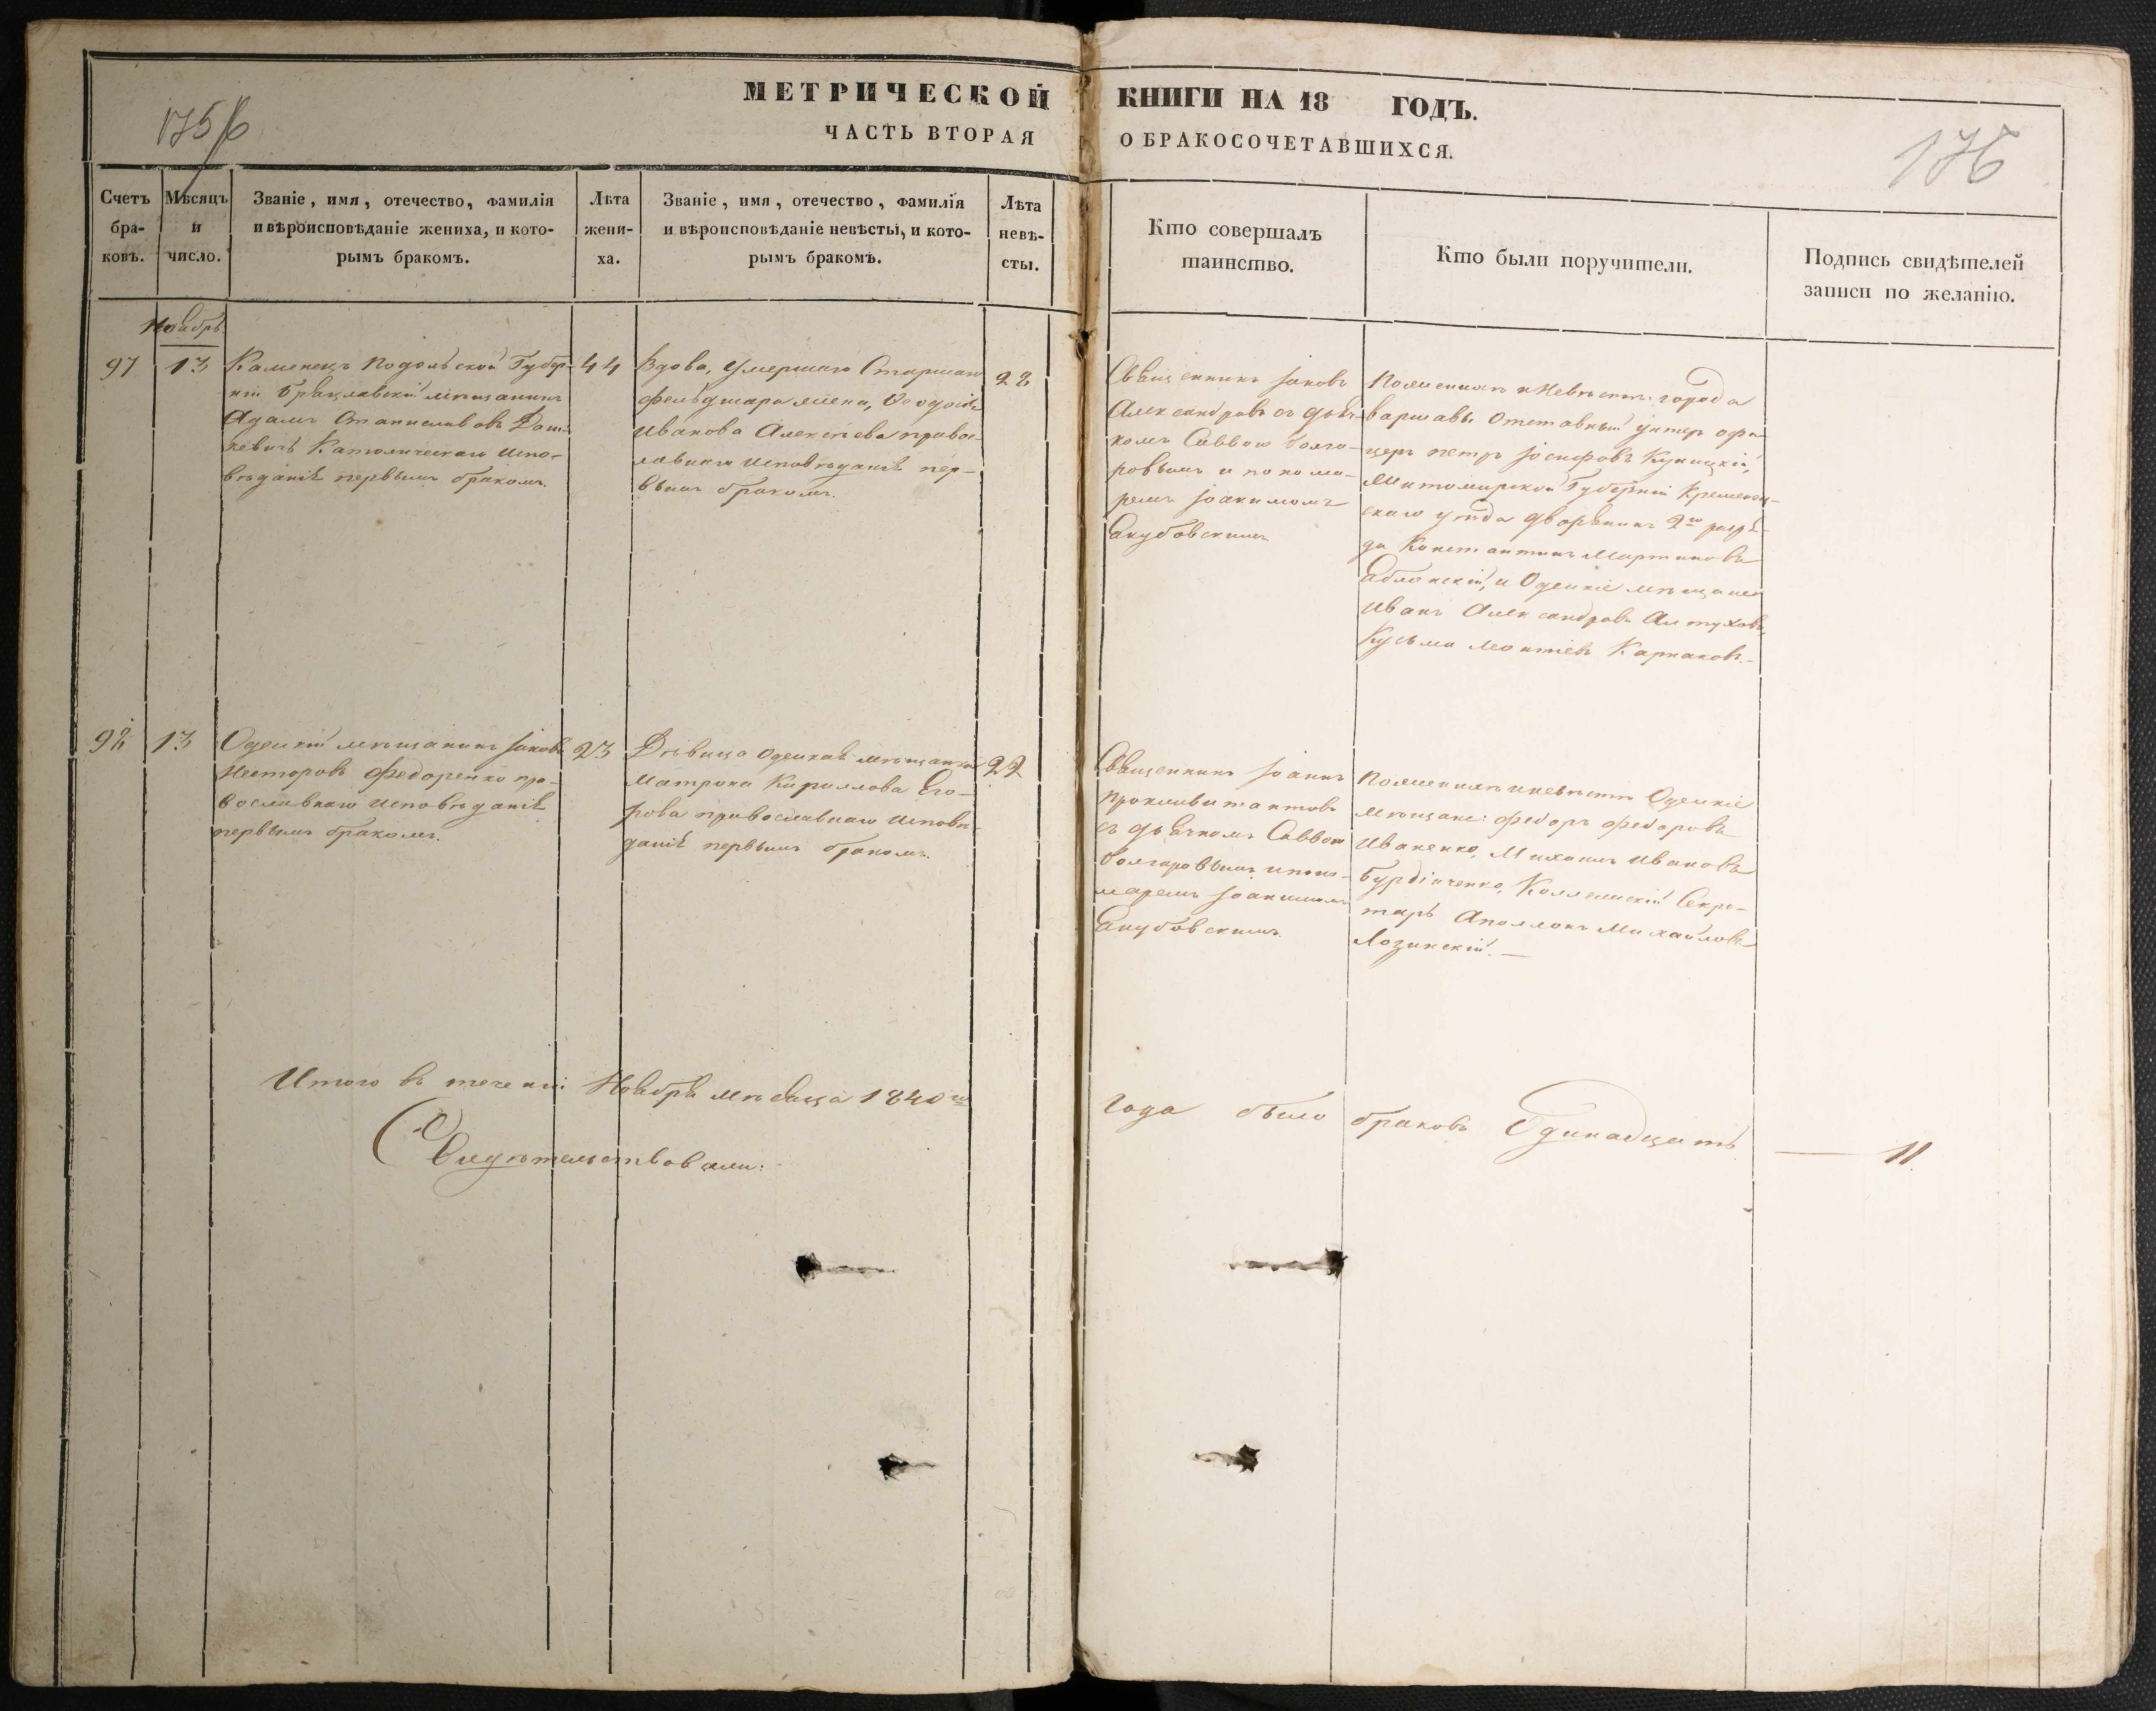 МЕТРИЧЕСКОЙ КНИГИ НА 18 ГОДЪ.
175/6
ЧАСТЬ ВТОРАЯ О БРАКОСОЧЕТАВШИХСЯ.
176
Счетъ
бра-
ковъ.
Мѣсяцъ
и
число.
Званіе, имя, отечество, фамилія
и вѣроисповѣданіе жениха, и кото-
рымъ бракомъ.
Лѣта
жени-
ха.
Званіе, имя, отечество, фамилія
и вѣроисповѣданіе невѣсты, и кото-
рымъ бракомъ.
Лѣта
невѣ-
сты.
Кто совершалъ
таинство.
Кто были поручители.
Подпись свидѣтелей
записи по желанію.
Ноябрь
97
13
Каменецъ Подольской Губер-
ніи Брацлавскій мѣщанинъ
Адамъ Станиславовъ Даш-
кевичъ Католическаго испо-
вѣданія первымъ бракомъ.
44
Вдова, умершаго Старшаго
фельдшера жена,
Иванова Алексѣева правос-
лавнаго исповѣданія пер-
вымъ бракомъ.
28
Священникъ Іаковъ
Александровъ съ дьяч-
комъ Саввою Болга-
ровымъ и понома-
ремъ Іоакимомъ
Якубовскимъ
По женихѣ и невѣстѣ: города
Варшавы Отставный унтеръ офи-
церъ Петръ Іосифовъ Куницкій,
Житомирской Губерніи Кременец-
скаго уѣзда дворянинъ 2го разря-
да Константинъ Мартиновъ
Яблонскій, и Одескіе мѣщане
Иванъ Александровъ Алтуховъ,
Кузьма Леонтіевъ Карпаковъ.
98
13
Одескій мѣщанинъ Іаковъ
Несторовъ Федоренко пра-
вославнаго исповѣданія
первымъ бракомъ.
23
Дѣвица Одеская мѣщанка
Матрона Кирилова Его-
рова православнаго исповѣ-
данія первымъ бракомъ.
22
Священникъ Іоаннъ
съ дьячкомъ Саввою
Болгаровымъ и поно-
маремъ Іоакимомъ
Якубовскимъ.
По женихѣ и невѣстѣ Одескіе
мѣщане: Федоръ Федоровъ
Иваненко, Михаилъ Ивановъ
Бурдінченко, Коллежскій Секре-
тарь Аполлонъ Михайловъ
Лозинскій.
Итого въ теченіи Ноября мѣсяца 1840го года было браковъ Одинадцать 11.
Свидѣтельствовали: